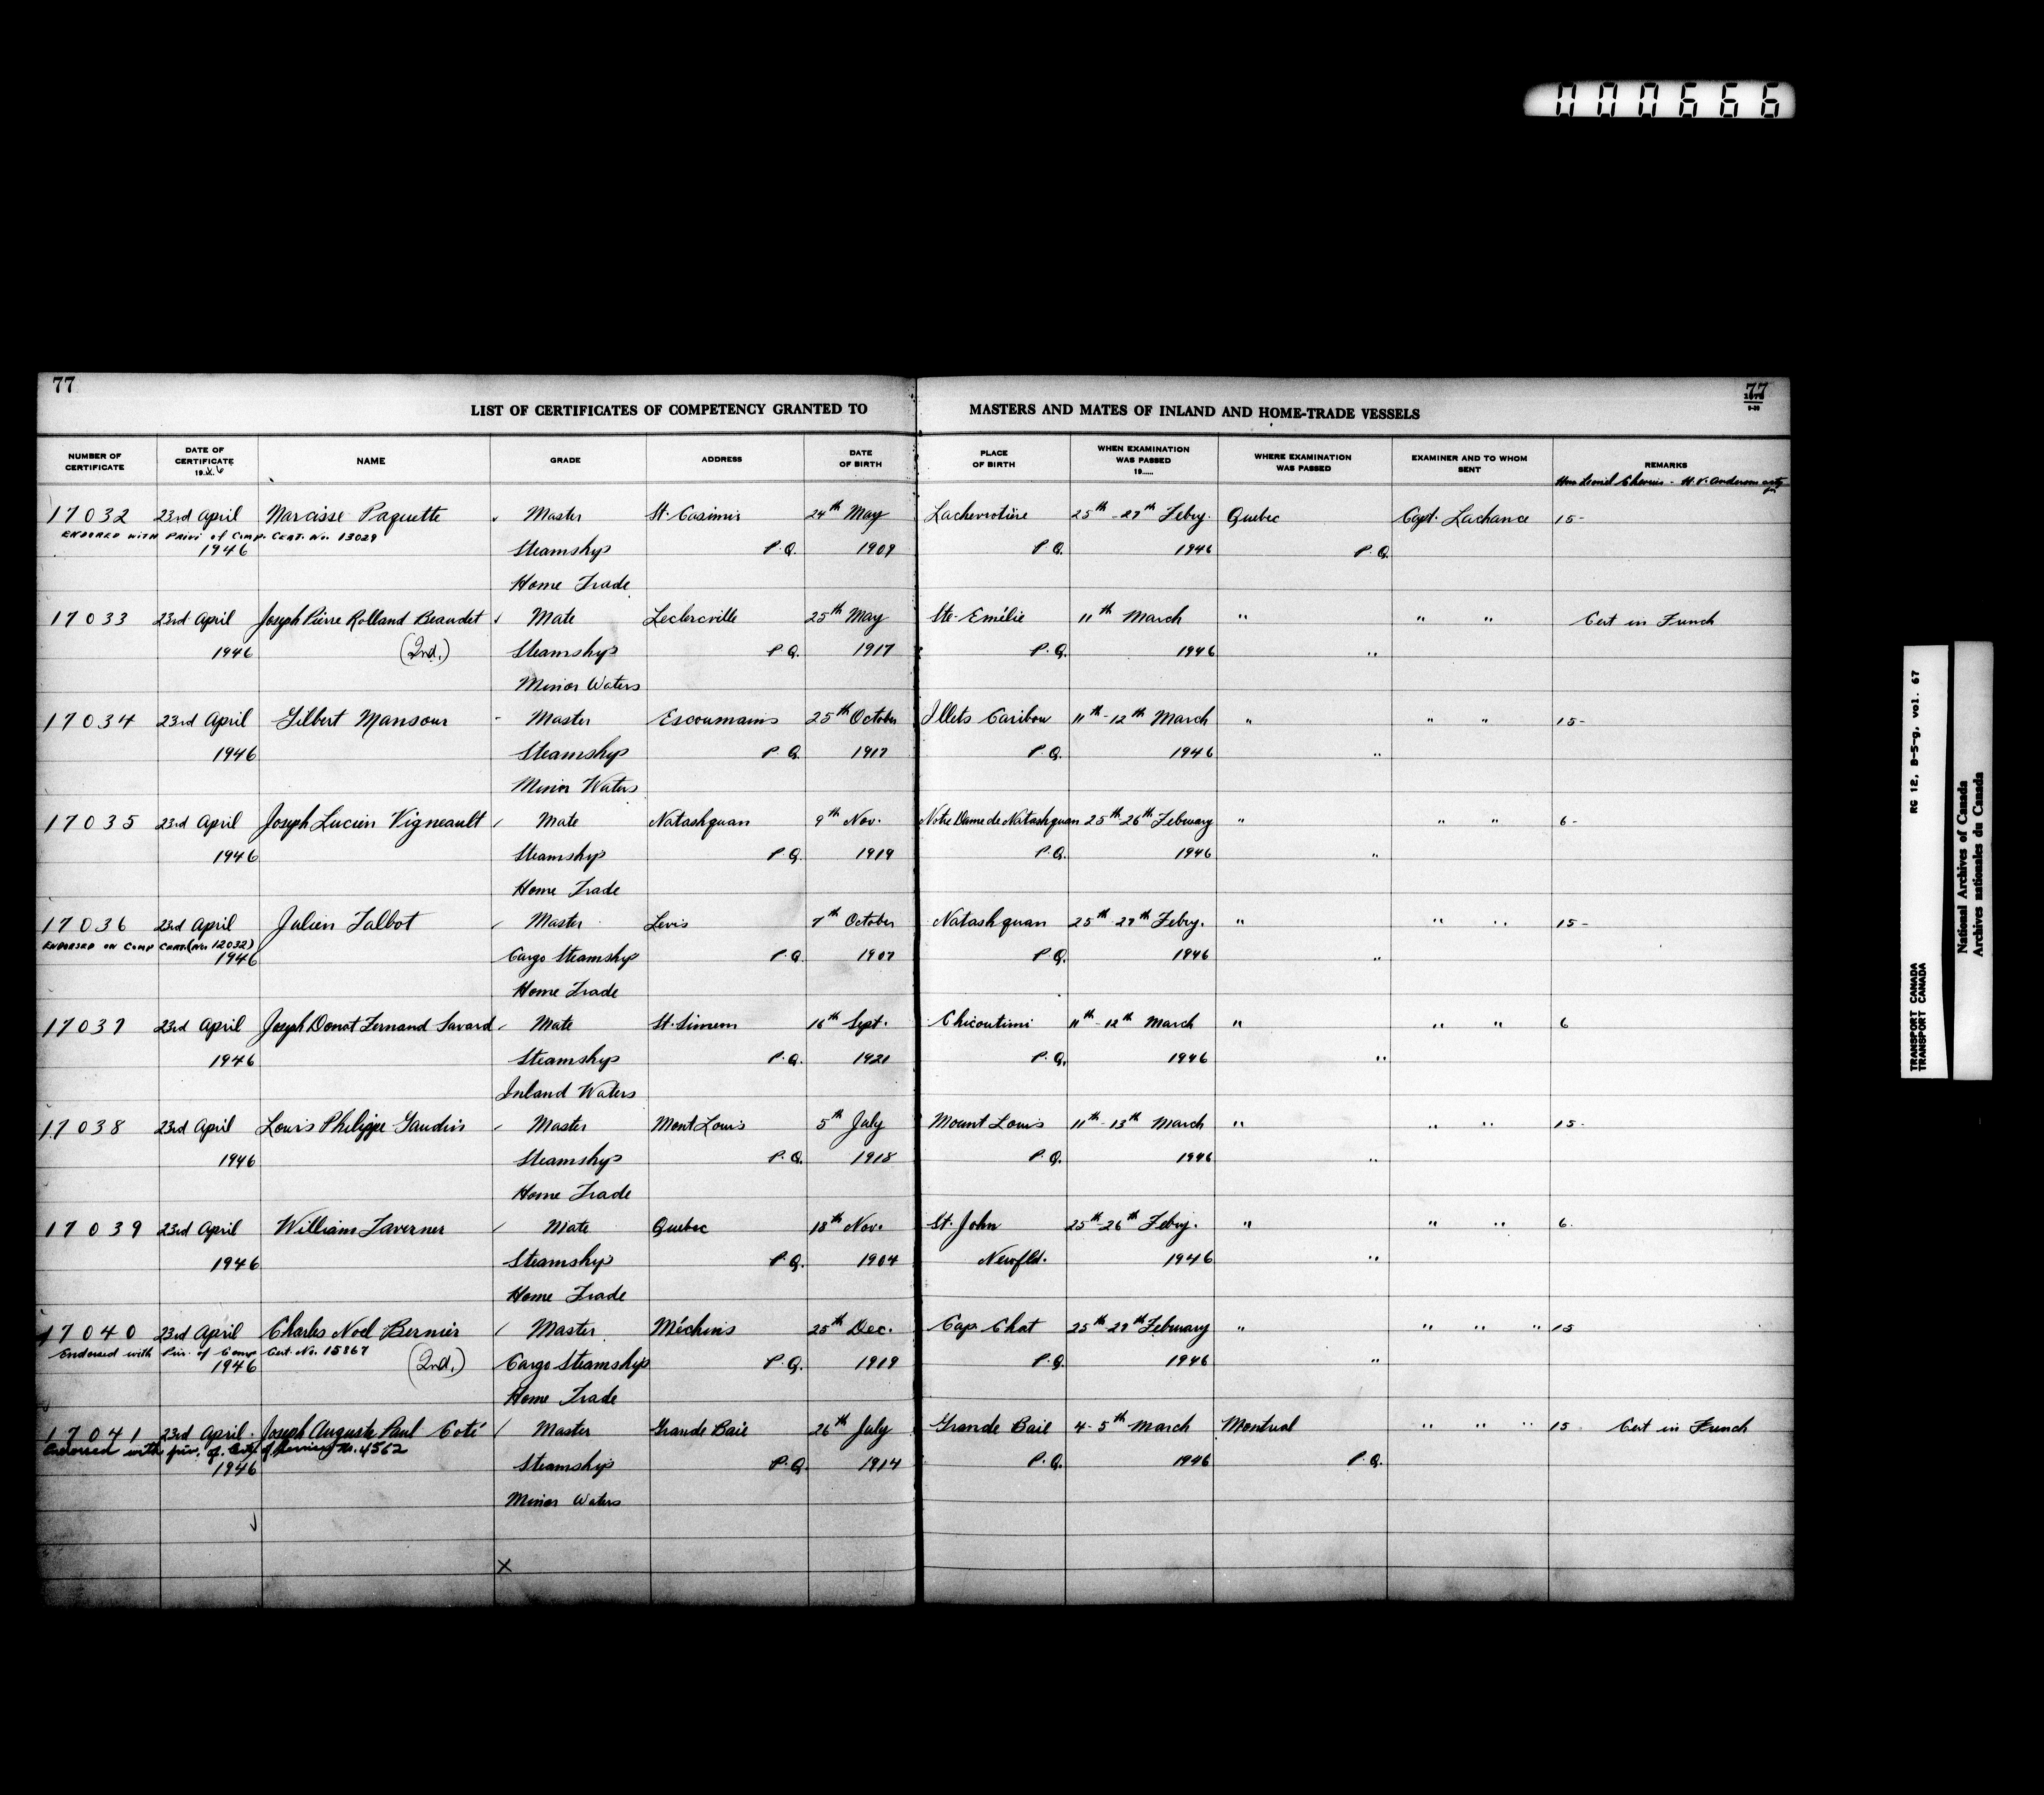 000666
77
77
LIST OF CERTIFICATES OF COMPETENCY GRANTED TO MASTERS AND MATES OF INLAND AND HOME-TRADE VESSELS
NUMBER OF CERTIFICATE DATE OF CERTIFICATE NAME GRADE ADDRESS DATE OF BIRTH PLACE OF BIRTH WHEN EXAMINATION WAS PASSED 19..... WHERE EXAMINATION WAS PASSED EXAMINER AND TO WHOM SENT REMARKS
17032 23rd April Narcisse Paquette Master St. Casimir 24th May Lachevrotière 25th-27th Febry. Quebec Capt. Lachance 15-
ENDORED WITH PRIVI of COMP. CERT. No. 13029
1946 Steamship P.Q. 1909 P.Q. 1946 P.Q.
Home Trade
17033 23rd April Joseph Pierre Rolland Beaudet Mate Leclercville 25th May Ste. Emélie 11th March " " " Cert in French
1946 (2nd.) Steamship P.Q. 1917 P.Q. 1946 "
Minor Waters
17034 23rd April Gilbert Mansour - Master Escoumains 25th October Illets Caribou 11th-12th March " " " 15-
1946 Steamship P.Q. 1917 P.Q. 1946 "
Minor Waters
17035 23rd April Joseph Lucien Vigneault / Mate Natashquan 9th Nov. Notre Dame de Natashquan 25th 26th February " " " 6-
1946 Steamship P.Q. 1919 P.Q. 1946 "
Home Trade
17036 23rd April Julien Talbot / Master Levis 7th October Natashquan 25th-27th Febry. " " " 15-
ENDORSED ON COMP CERT. (No. 12032)
1946 Cargo Steamship P.Q. 1907 P.Q. 1946 "
Home Trade
17037 23rd April Joseph Donat Fernand Savard / Mate St. Simeon 16th Sept. Chicoutimi 11th-12th March " " " 6
1946 Steamship P.Q. 1921 P.Q. 1946 "
Inland Waters
17038 23rd April Louis Philippe Gaudin / Master Mont Louis 5th July Mount Louis 11th-13th March " " " 15-
1946 Steamship P.Q. 1918 P.Q. 1946 "
Home Trade
17039 23rd April William Taverner / Mate Quebec 18th Nov. St. John 25th-26th Febry. " " " 6.
1946 Steamship P.Q. 1904 Newfld. 1946 "
Home Trade
17040 23rd April Charles Noel Bernier / Master Méchins 25th Dec. Cap Chat 25th-27th February " " " " 15
Endorsed with Priv. of Comp Cert. No. 15867
1946 (2nd.) Cargo Steamship P.Q. 1919 P.Q. 1946 "
Home Trade
17041 23rd April Joseph Auguste Paul Coté / Master Grande Baie 26th July Grande Baie 4-5th March Montreal " " " 15 Cert in French
Endorsed with priv. of Cert. of Service No. 4562
1946 Steamship P.Q. 1914 P.Q. 1946 P.Q.
Minor Waters
X
RG 12, B-5-g, vol. 67
TRANSPORT CANADA
TRANSPORT CANADA
National Archives of Canada
Archives nationales du Canada